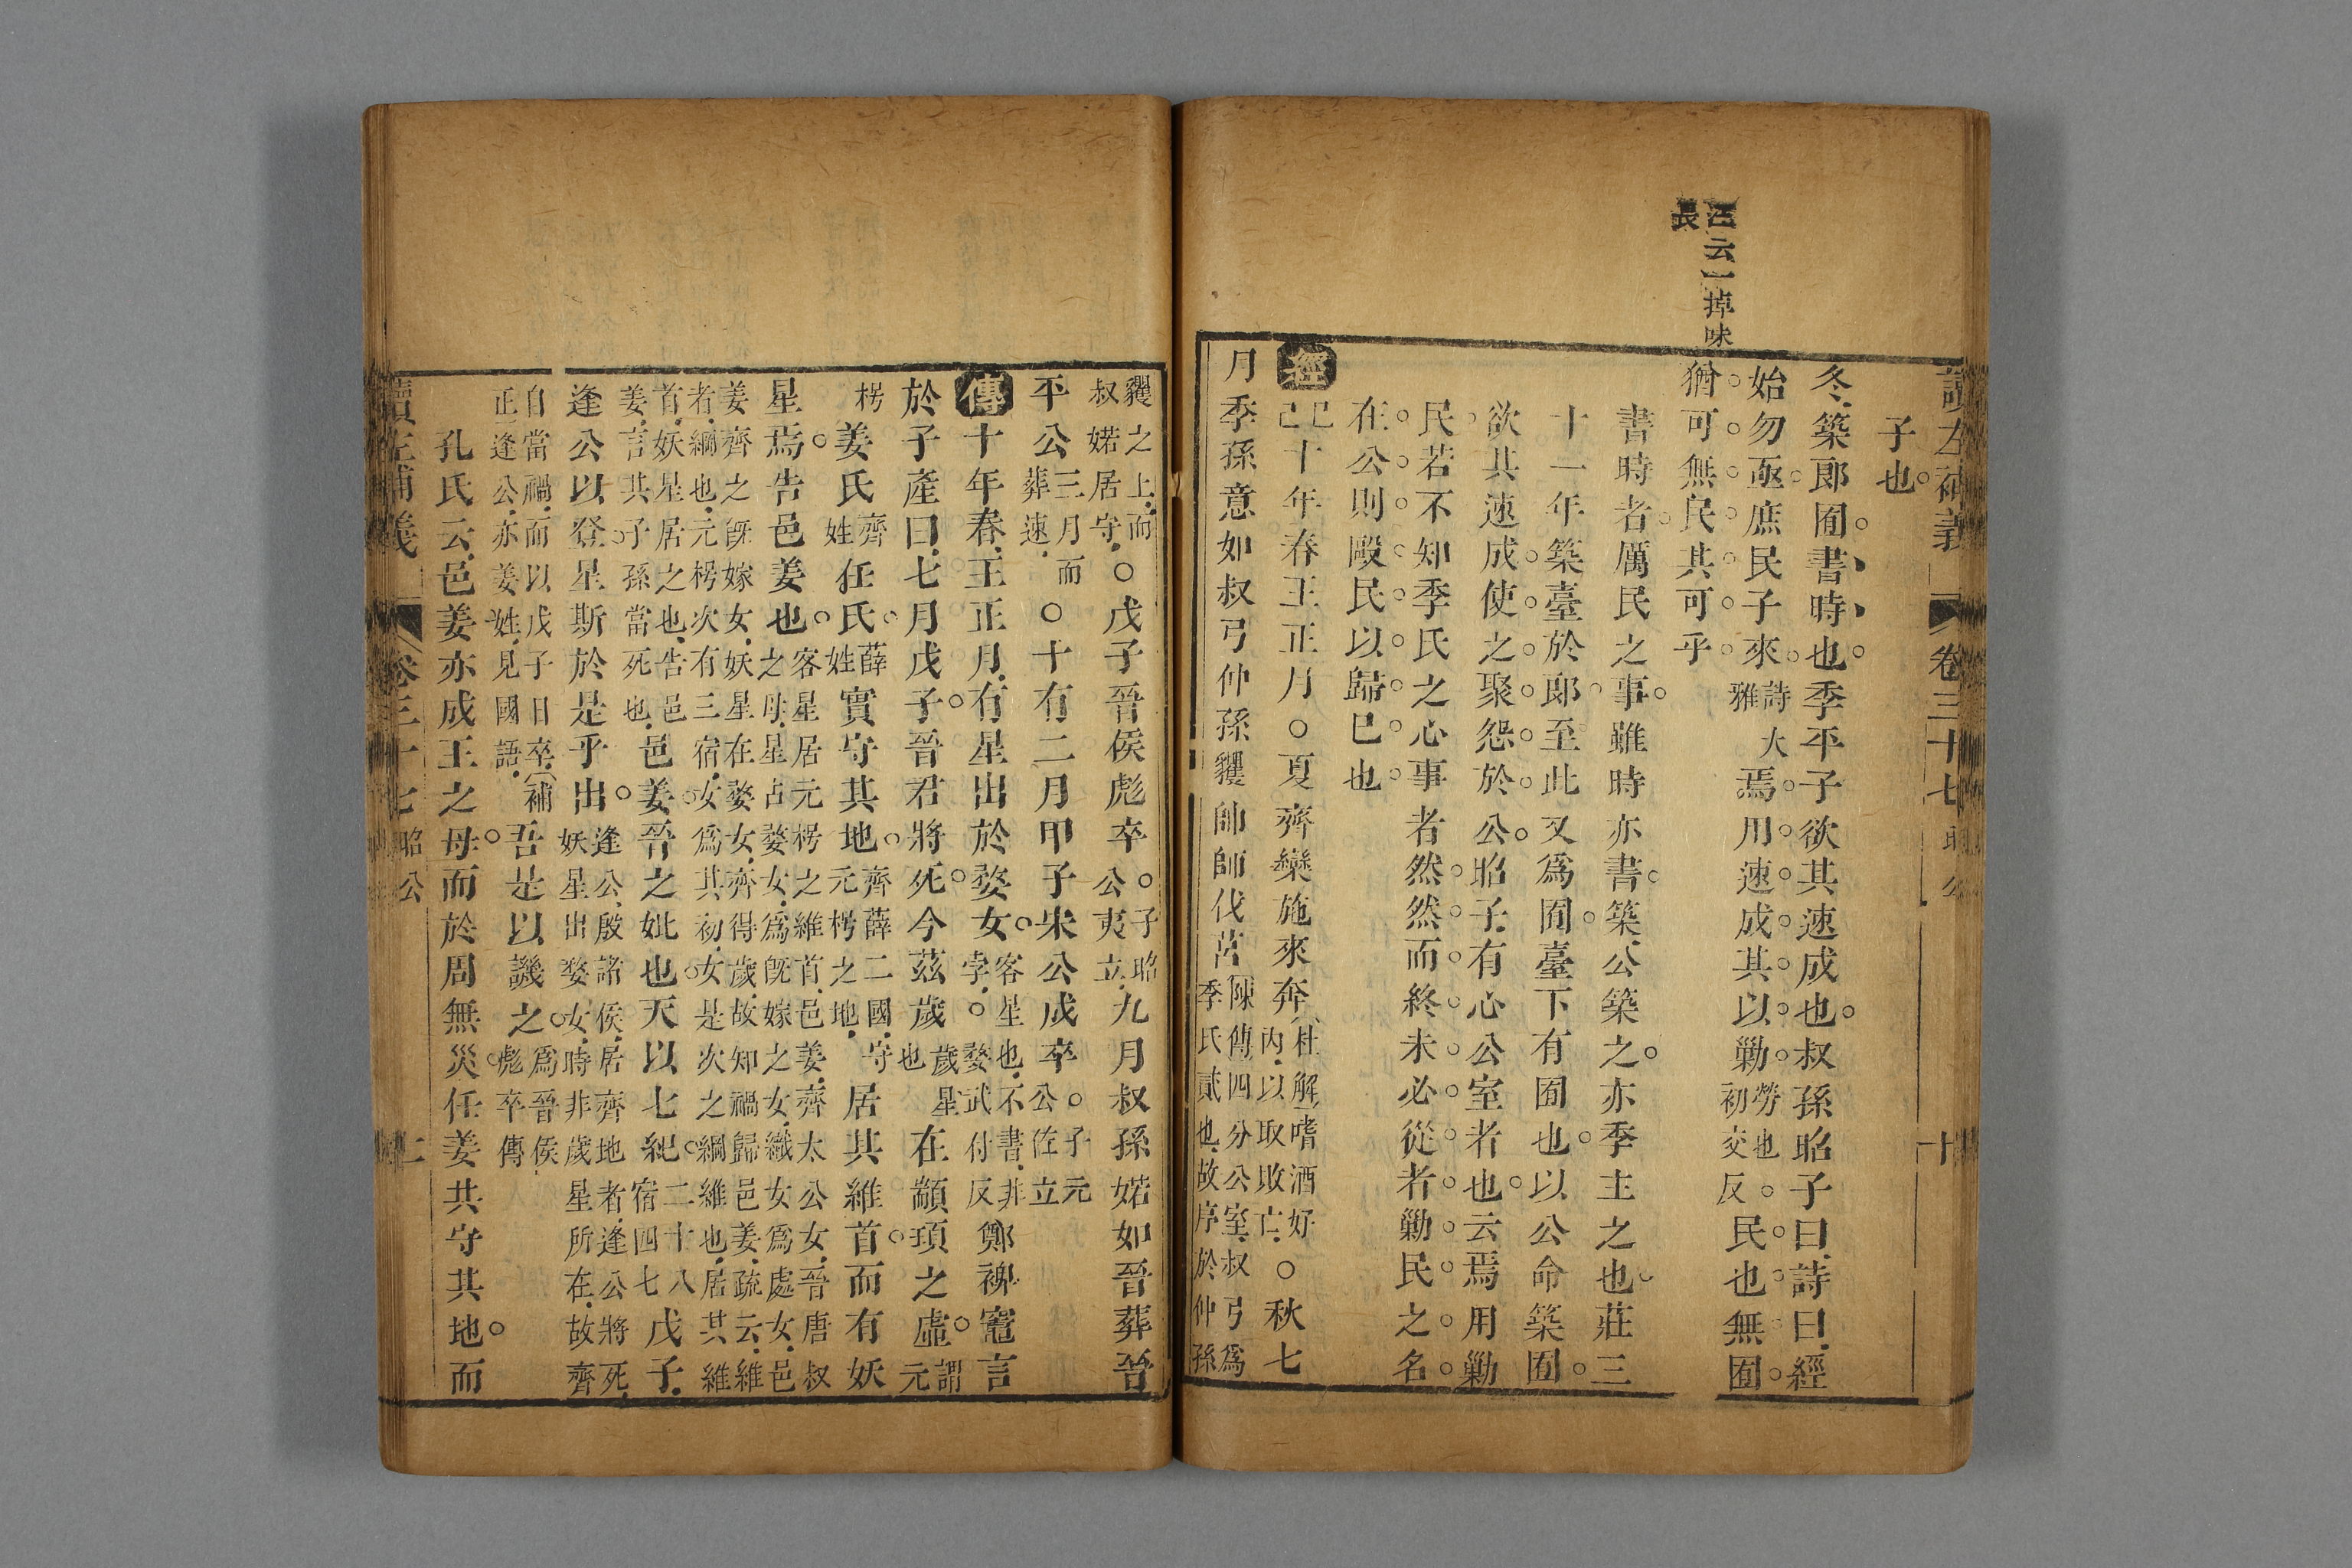 讀左補義 卷三十七 昭公 十
子也
冬築郎囿書時也季平子欲其速成也叔孫昭子曰詩曰經
始勿亟庶民子來詩大雅焉用速成其以勦勞也初交反民也無囿
猶可無民其可乎
汪云一掉味
長
書時者厲民之事雖時亦書築公築之亦季主之也莊三
十一年築臺於郎至此又爲囿臺下有囿也以公命築囿
欲其速成使之聚怨於公昭子有心公室者也云焉用勦
民若不知季氏之心事者然然而終未必從者勦民之名
在公則毆民以歸巳也
經 己巳十年春王正月○夏齊欒施來奔杜解嗜酒好內以取敗亡○秋七
月季孫意如叔弓仲孫貜帥師伐莒陳傳四分公室叔弓爲季氏貳也故序於仲孫
貜之上而叔婼居守○戊子晉侯彪卒子昭公夷立九月叔孫婼如晉葬晉
平公三月而葬速○十有二月甲子宋公成卒子元公佐立
傳 十年春王正月有星出於婺女客星也不書非孛婺武付反鄭裨竈言
於子產曰七月戊子晉君將死今茲歲歲星也在顓頊之虛謂元
枵姜氏齊姓任氏薛姓實守其地齊薛二國守元枵之地居其維首而有妖
星焉告邑姜也客星居元枵之維首邑姜齊太公女晉唐叔之母星占婺女爲旣嫁之女織女爲處女邑
姜齊之旣嫁女妖星在婺女齊得歲故知禍歸邑姜疏云維者綱也元枵次有三宿女爲其初女是次之綱維也居其維
首妖星居之也告邑姜言其子孫當死也邑姜晉之妣也天以七紀二十八宿四七戊子
逢公以登星斯於是乎出逢公殷諸侯居齊地者逢公將死妖星出婺女時非歲星所在故齊
自當禍而以戊子日卒補正逢公亦姜姓見國語吾是以譏之爲晉侯彪卒傳
孔氏云邑姜亦成王之母而於周無災任姜共守其地而
讀左補義 卷三十七 昭公 十